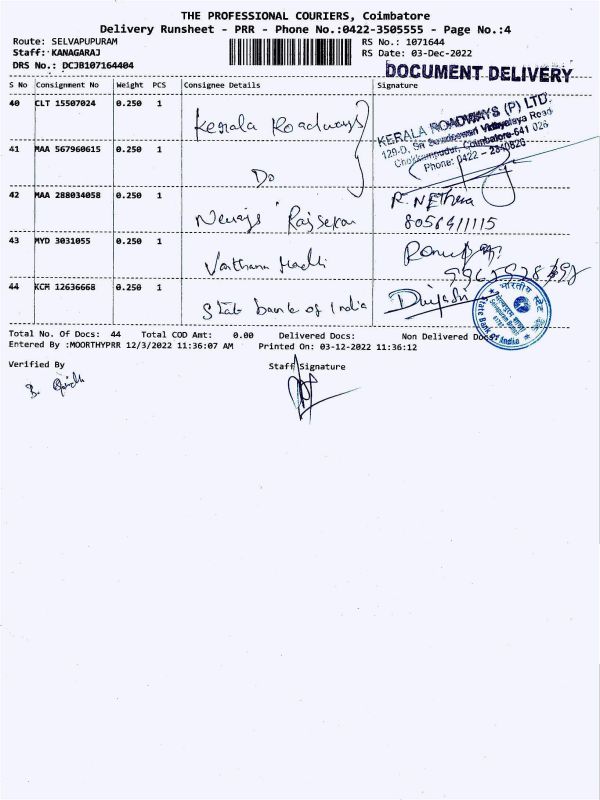 THE PROFESSIONAL COURIERS, Coimbatore
Delivery Runsheet - PRR - Phone No.:0422-3505555 - Page No.:4
Route: SELVAPUPURAM RS No.: 1071644
Staff: KANAGARAJ RS Date: 03-Dec-2022
DRS No.: DCJB107164404 DOCUMENT DELIVERY
S No Consignment No Weight PCS Consignee Details Signature
40 CLT 15507024 0.250 1 Kerala Roadways
KERALA ROADWAYS (P) LTD.
129-D, Sri Vidhyalaya Road
Coimbatore-641 026
Phone: 0422 -
41 MAA 567960615 0.250 1 Do
42 MAA 288034058 0.250 1 R. NEthra
8056411115
43 MYD 3031055 0.250 1
44 KCM 12636668 0.250 1 State bank of India
भारतीय स्टेट
State Bank of India
Total No. Of Docs: 44 Total COD Amt: 0.00 Delivered Docs: Non Delivered Docs:
Entered By :MOORTHYPRR 12/3/2022 11:36:07 AM Printed On: 03-12-2022 11:36:12
Verified By Staff Signature